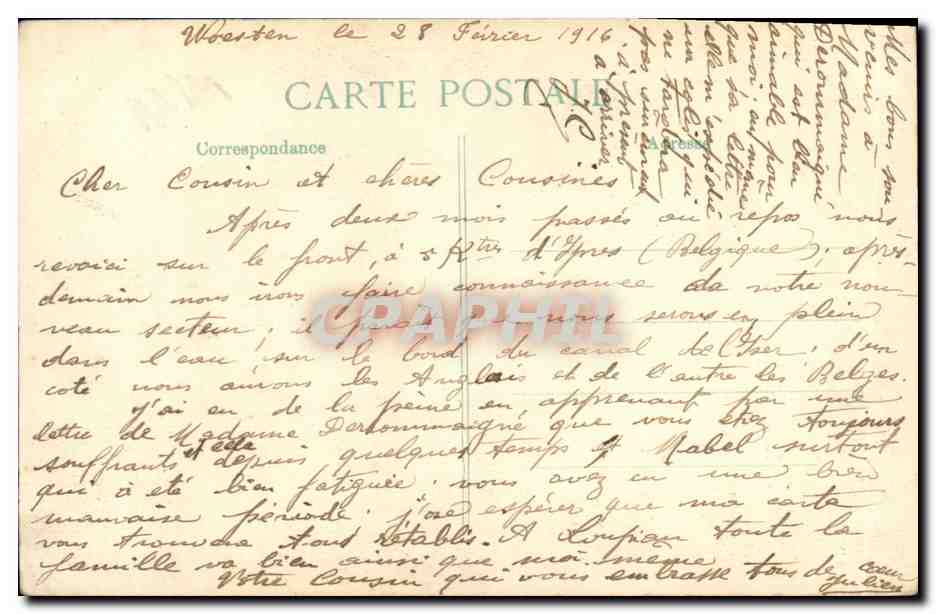 Woesten le 28 Février 1916
CARTE POSTALE
Correspondance
Adresse
Cher Cousin et chères Cousines
Après deux mois passés au repos, nous
revoici sur le front, à 5 K^tres d'Ypres (Belgique), après-
demain nous irons faire connaissance da notre nou-
veau secteur; il parait que nous serons en plein
dans l'eau, sur le bord du canal de l'Yser, d'un
coté nous aurons les Anglais et de l'autre les Belges.
J'ai eu de la peine en apprenant par une
lettre de Madame Derommaigné que vous étiez toujours
souffrants et cela depuis quelques temps et Mabel surtout
qui à été bien fatiguée. vous avez eu une bien
mauvaise période. j'ose espérer que ma carte
vous trouvera tous rétablis. A Loupian toute la
famille va bien ainsi que moi même
Votre Cousin qui vous embrasse tous de cœur
Julien
Mes bons sou
venirs à
Madame
Derommaigné
qui est bien
aimable pour
moi, en même
que sa lettre
elle m'a
un colis qui
ne tardera
pas surement
à présent
à arriver
CPAPHIL